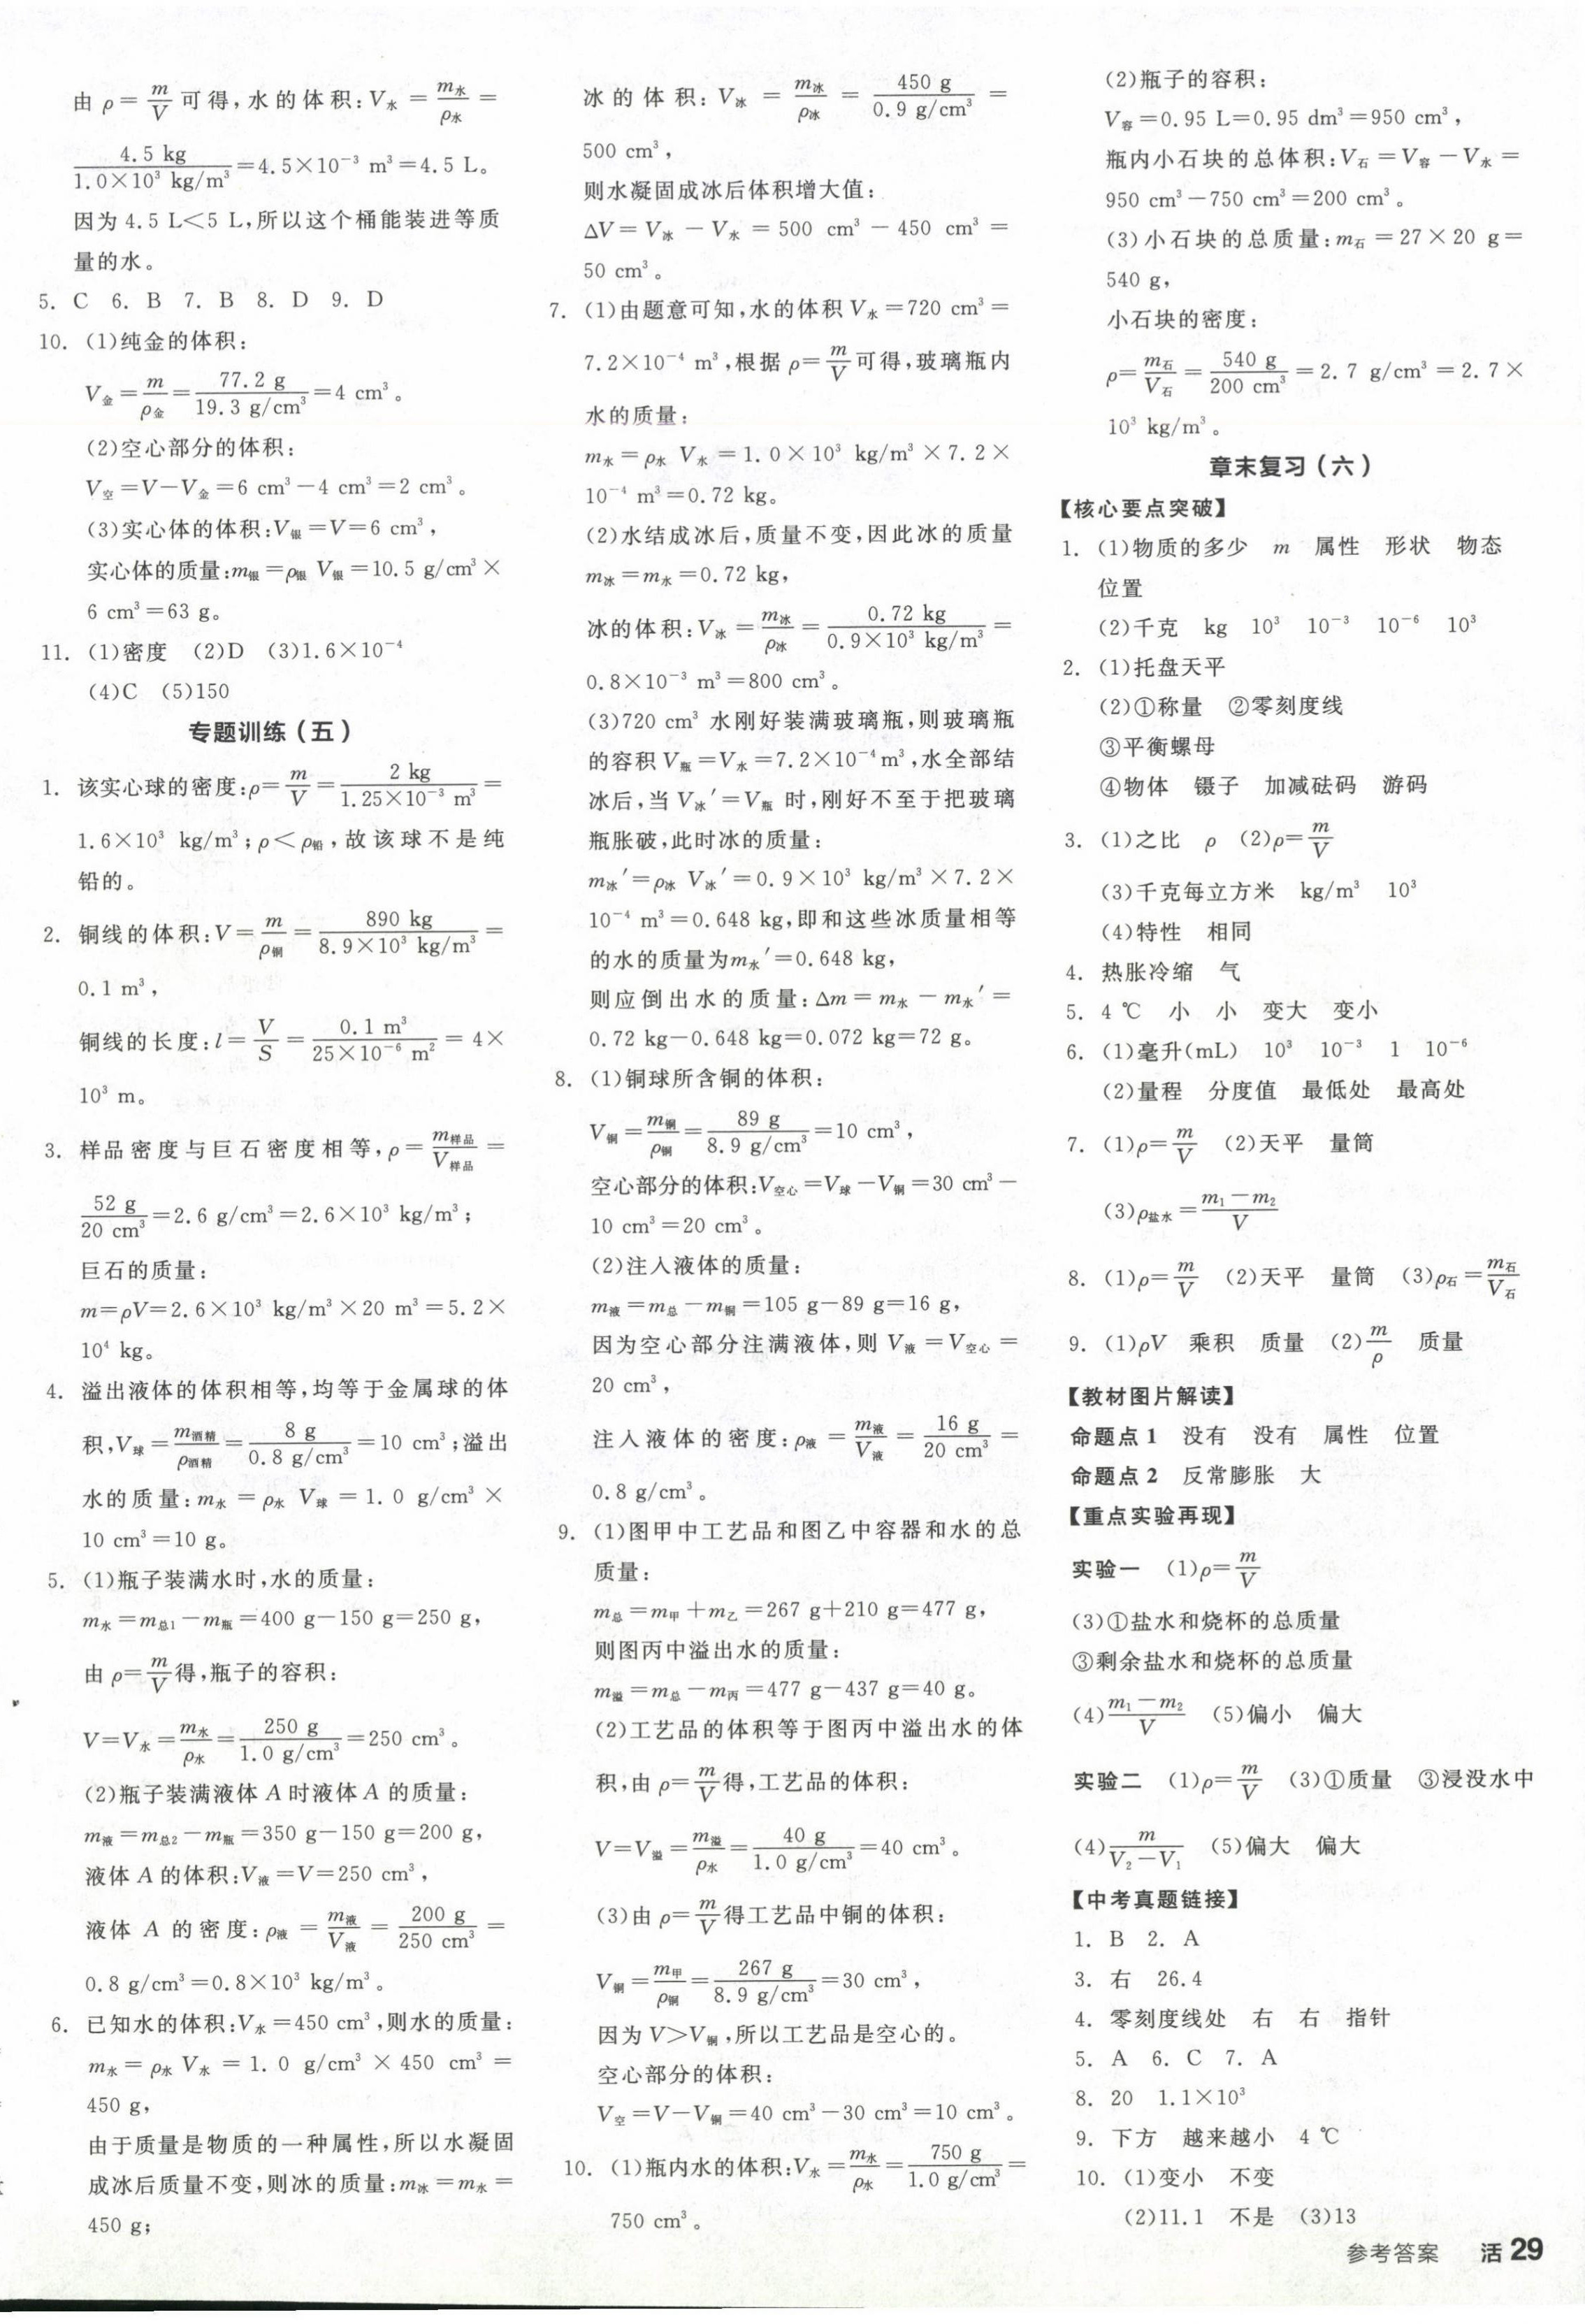 由 ρ=m/V 可得,水的体积:V水=m水/ρ水=
4.5 kg/1.0×10³ kg/m³=4.5×10⁻³ m³=4.5 L。
因为 4.5 L<5 L,所以这个桶能装进等质
量的水。
5. C 6. B 7. B 8. D 9. D
10. (1)纯金的体积:
V金=m/ρ金=77.2 g/19.3 g/cm³=4 cm³。
(2)空心部分的体积:
V空=V-V金=6 cm³-4 cm³=2 cm³。
(3)实心体的体积:V银=V=6 cm³,
实心体的质量:m银=ρ银 V银=10.5 g/cm³×
6 cm³=63 g。
11. (1)密度 (2)D (3)1.6×10⁻⁴
(4)C (5)150
专题训练(五)
1. 该实心球的密度:ρ=m/V=2 kg/1.25×10⁻³ m³=
1.6×10³ kg/m³;ρ<ρ铅,故该球不是纯
铅的。
2. 铜线的体积:V=m/ρ铜=890 kg/8.9×10³ kg/m³=
0.1 m³,
铜线的长度:l=V/S=0.1 m³/25×10⁻⁶ m²=4×
10³ m。
3. 样品密度与巨石密度相等,ρ=m样品/V样品=
52 g/20 cm³=2.6 g/cm³=2.6×10³ kg/m³;
巨石的质量:
m=ρV=2.6×10³ kg/m³×20 m³=5.2×
10⁴ kg。
4. 溢出液体的体积相等,均等于金属球的体
积,V球=m酒精/ρ酒精=8 g/0.8 g/cm³=10 cm³;溢出
水的质量:m水=ρ水 V球=1.0 g/cm³×
10 cm³=10 g。
5. (1)瓶子装满水时,水的质量:
m水=m总1-m瓶=400 g-150 g=250 g,
由 ρ=m/V得,瓶子的容积:
V=V水=m水/ρ水=250 g/1.0 g/cm³=250 cm³。
(2)瓶子装满液体 A 时液体 A 的质量:
m液=m总2-m瓶=350 g-150 g=200 g,
液体 A 的体积:V液=V=250 cm³,
液体 A 的密度:ρ液=m液/V液=200 g/250 cm³=
0.8 g/cm³=0.8×10³ kg/m³。
6. 已知水的体积:V水=450 cm³,则水的质量:
m水=ρ水 V水=1.0 g/cm³×450 cm³=
450 g,
由于质量是物质的一种属性,所以水凝固
成冰后质量不变,则冰的质量:m冰=m水=
450 g;
冰的体积:V冰=m冰/ρ冰=450 g/0.9 g/cm³=
500 cm³,
则水凝固成冰后体积增大值:
ΔV=V冰-V水=500 cm³-450 cm³=
50 cm³。
7. (1)由题意可知,水的体积 V水=720 cm³=
7.2×10⁻⁴ m³,根据 ρ=m/V可得,玻璃瓶内
水的质量:
m水=ρ水 V水=1.0×10³ kg/m³×7.2×
10⁻⁴ m³=0.72 kg。
(2)水结成冰后,质量不变,因此冰的质量
m冰=m水=0.72 kg,
冰的体积:V冰=m冰/ρ冰=0.72 kg/0.9×10³ kg/m³=
0.8×10⁻³ m³=800 cm³。
(3)720 cm³ 水刚好装满玻璃瓶,则玻璃瓶
的容积 V瓶=V水=7.2×10⁻⁴m³,水全部结
冰后,当 V冰′=V瓶 时,刚好不至于把玻璃
瓶胀破,此时冰的质量:
m冰′=ρ冰 V冰′=0.9×10³ kg/m³×7.2×
10⁻⁴ m³=0.648 kg,即和这些冰质量相等
的水的质量为m水′=0.648 kg,
则应倒出水的质量:Δm=m水-m水′=
0.72 kg-0.648 kg=0.072 kg=72 g。
8. (1)铜球所含铜的体积:
V铜=m铜/ρ铜=89 g/8.9 g/cm³=10 cm³,
空心部分的体积:V空心=V球-V铜=30 cm³-
10 cm³=20 cm³。
(2)注入液体的质量:
m液=m总-m铜=105 g-89 g=16 g,
因为空心部分注满液体,则 V液=V空心=
20 cm³,
注入液体的密度:ρ液=m液/V液=16 g/20 cm³=
0.8 g/cm³。
9. (1)图甲中工艺品和图乙中容器和水的总
质量:
m总=m甲+m乙=267 g+210 g=477 g,
则图丙中溢出水的质量:
m溢=m总-m丙=477 g-437 g=40 g。
(2)工艺品的体积等于图丙中溢出水的体
积,由 ρ=m/V得,工艺品的体积:
V=V溢=m溢/ρ水=40 g/1.0 g/cm³=40 cm³。
(3)由 ρ=m/V得工艺品中铜的体积:
V铜=m甲/ρ铜=267 g/8.9 g/cm³=30 cm³,
因为 V>V铜,所以工艺品是空心的。
空心部分的体积:
V空=V-V铜=40 cm³-30 cm³=10 cm³。
10. (1)瓶内水的体积:V水=m水/ρ水=750 g/1.0 g/cm³=
750 cm³。
(2)瓶子的容积:
V容=0.95 L=0.95 dm³=950 cm³,
瓶内小石块的总体积:V石=V容-V水=
950 cm³-750 cm³=200 cm³。
(3)小石块的总质量:m石=27×20 g=
540 g,
小石块的密度:
ρ=m石/V石=540 g/200 cm³=2.7 g/cm³=2.7×
10³ kg/m³。
章末复习(六)
【核心要点突破】
1. (1)物质的多少 m 属性 形状 物态
位置
(2)千克 kg 10³ 10⁻³ 10⁻⁶ 10³
2. (1)托盘天平
(2)①称量 ②零刻度线
③平衡螺母
④物体 镊子 加减砝码 游码
3. (1)之比 ρ (2)ρ=m/V
(3)千克每立方米 kg/m³ 10³
(4)特性 相同
4. 热胀冷缩 气
5. 4 ℃ 小 小 变大 变小
6. (1)毫升(mL) 10³ 10⁻³ 1 10⁻⁶
(2)量程 分度值 最低处 最高处
7. (1)ρ=m/V (2)天平 量筒
(3)ρ盐水=m₁-m₂/V
8. (1)ρ=m/V (2)天平 量筒 (3)ρ石=m石/V石
9. (1)ρV 乘积 质量 (2)m/ρ 质量
【教材图片解读】
命题点 1 没有 没有 属性 位置
命题点 2 反常膨胀 大
【重点实验再现】
实验一 (1)ρ=m/V
(3)①盐水和烧杯的总质量
③剩余盐水和烧杯的总质量
(4)m₁-m₂/V (5)偏小 偏大
实验二 (1)ρ=m/V (3)①质量 ③浸没水中
(4)m/V₂-V₁ (5)偏大 偏大
【中考真题链接】
1. B 2. A
3. 右 26.4
4. 零刻度线处 右 右 指针
5. A 6. C 7. A
8. 20 1.1×10³
9. 下方 越来越小 4 ℃
10. (1)变小 不变
(2)11.1 不是 (3)13
参考答案 活 29